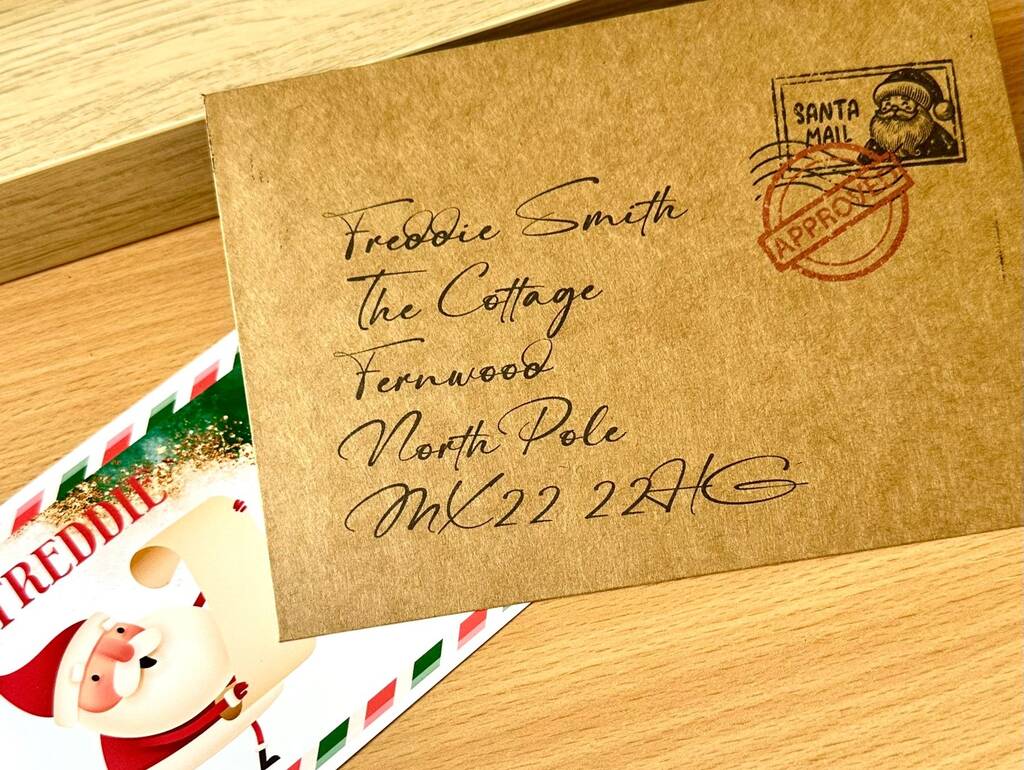 SANTA
MAIL
APPROVED
Freddie Smith
The Cottage
Fernwood
North Pole
MX22 22HG
FREDDIE